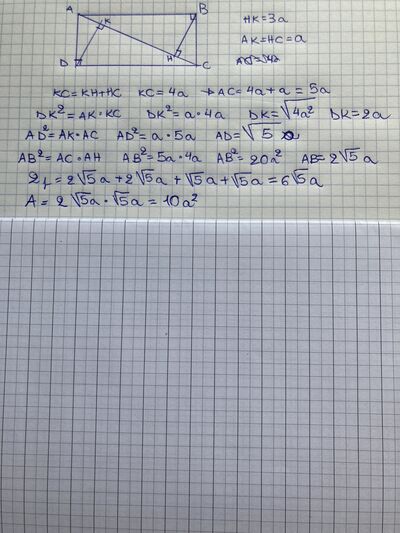 A B
K HK=3a
AK=HC=a
H
D C
KC=KH+HC KC=4a → AC=4a+a=5a
DK²=AK·KC DK²=a·4a DK=√4a² DK=2a
AD²=AK·AC AD²=a·5a AD=√5 a
AB²=AC·AH AB²=5a·4a AB²=20a² AB=2√5a
=2√5a+2√5a+√5a+√5a=6√5a
A=2√5a·√5a=10a²